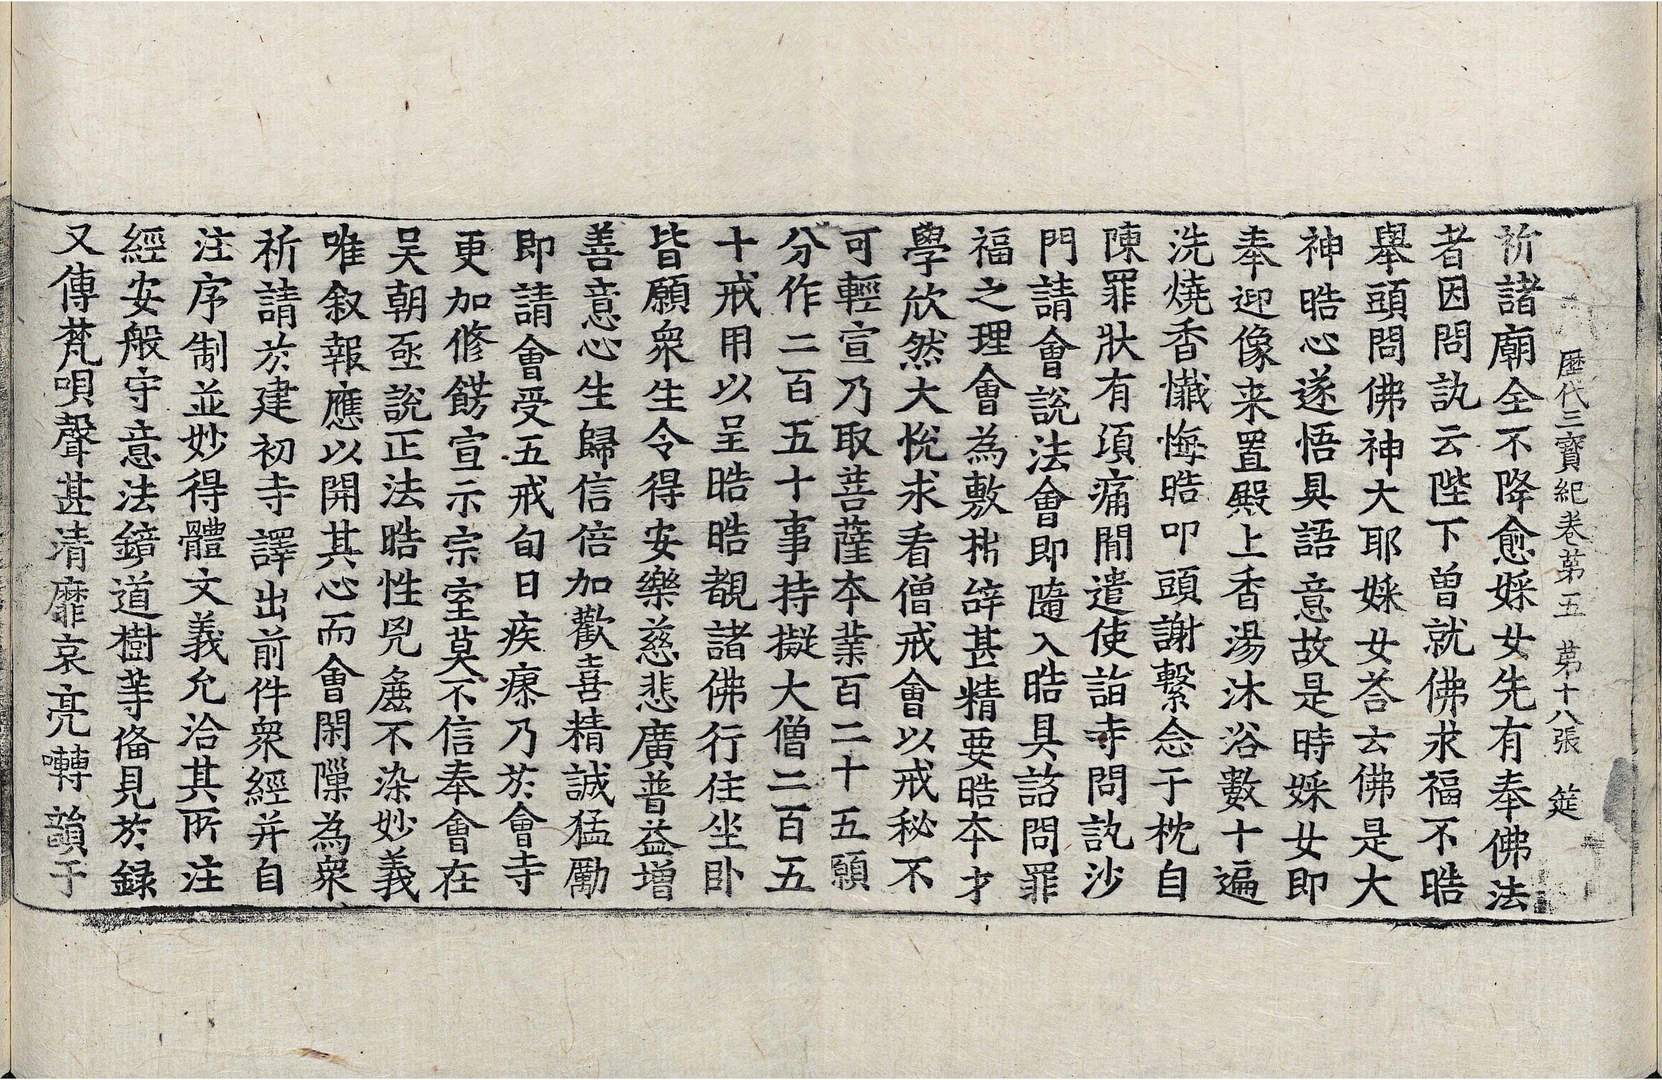 歷代三寶紀卷苐五　苐十八張　筵
祈諸廟全不降愈婇女先有奉佛法
者因問訊云陛下曾就佛求福不晧
舉頭問佛神大耶婇女荅云佛是大
神晧心遂悟具語意故是時婇女即
奉迎像来置殿上香湯沐浴數十遍
洗燒香懺悔晧叩頭謝繫念于枕自
陳罪狀有頃痛閒遣使詣寺問訊沙
門請會說法會即隨入晧具諮問罪
福之理會為敷析辝甚精要晧本才
學欣然大恱求看僧戒會以戒秘不
可輕宣乃取菩薩本業百二十五願
分作二百五十事持擬大僧二百五
十戒用以呈晧晧覩諸佛行住坐卧
皆願衆生令得安樂慈悲廣普益增
善意心生歸信倍加歡喜精誠猛勵
即請會受五戒旬日疾瘳乃於會寺
更加修餝宣示宗室莫不信奉會在
吴朝亟說正法晧性兇麁不染妙義
唯叙報應以開其心而會閑隙為衆
祈請於建初寺譯出前件衆經并自
注序制並妙得體文義允洽其所注
經安般守意法鏡道樹等俻見於録
又傳梵唄聲甚清靡哀亮囀韻于